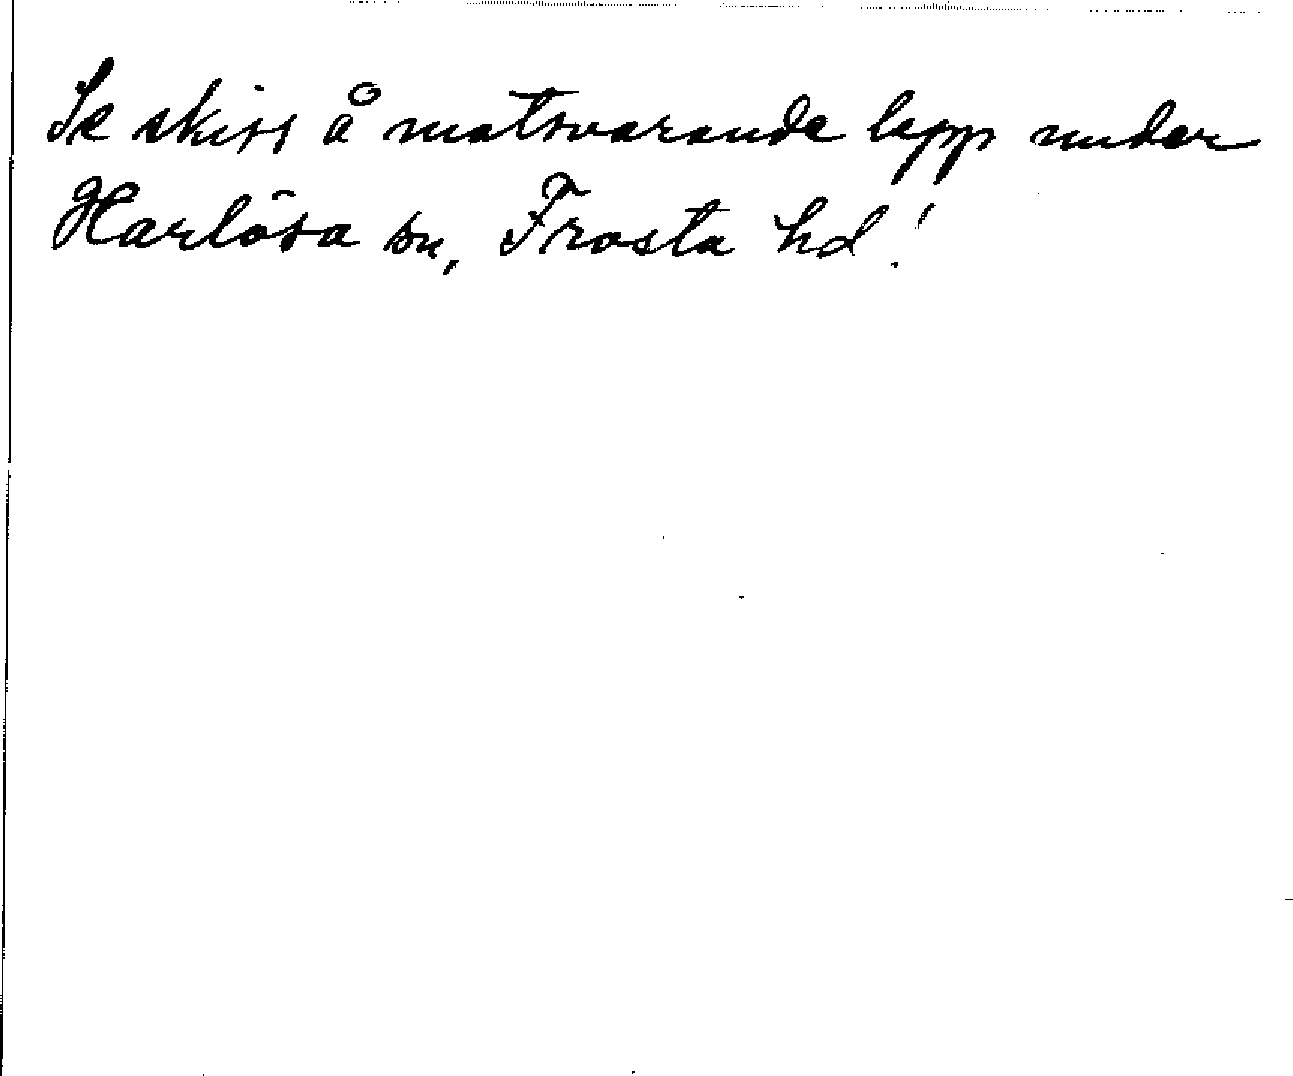 Se skiss å motsvarande lapp under
Harlösa sn, Frosta hd!